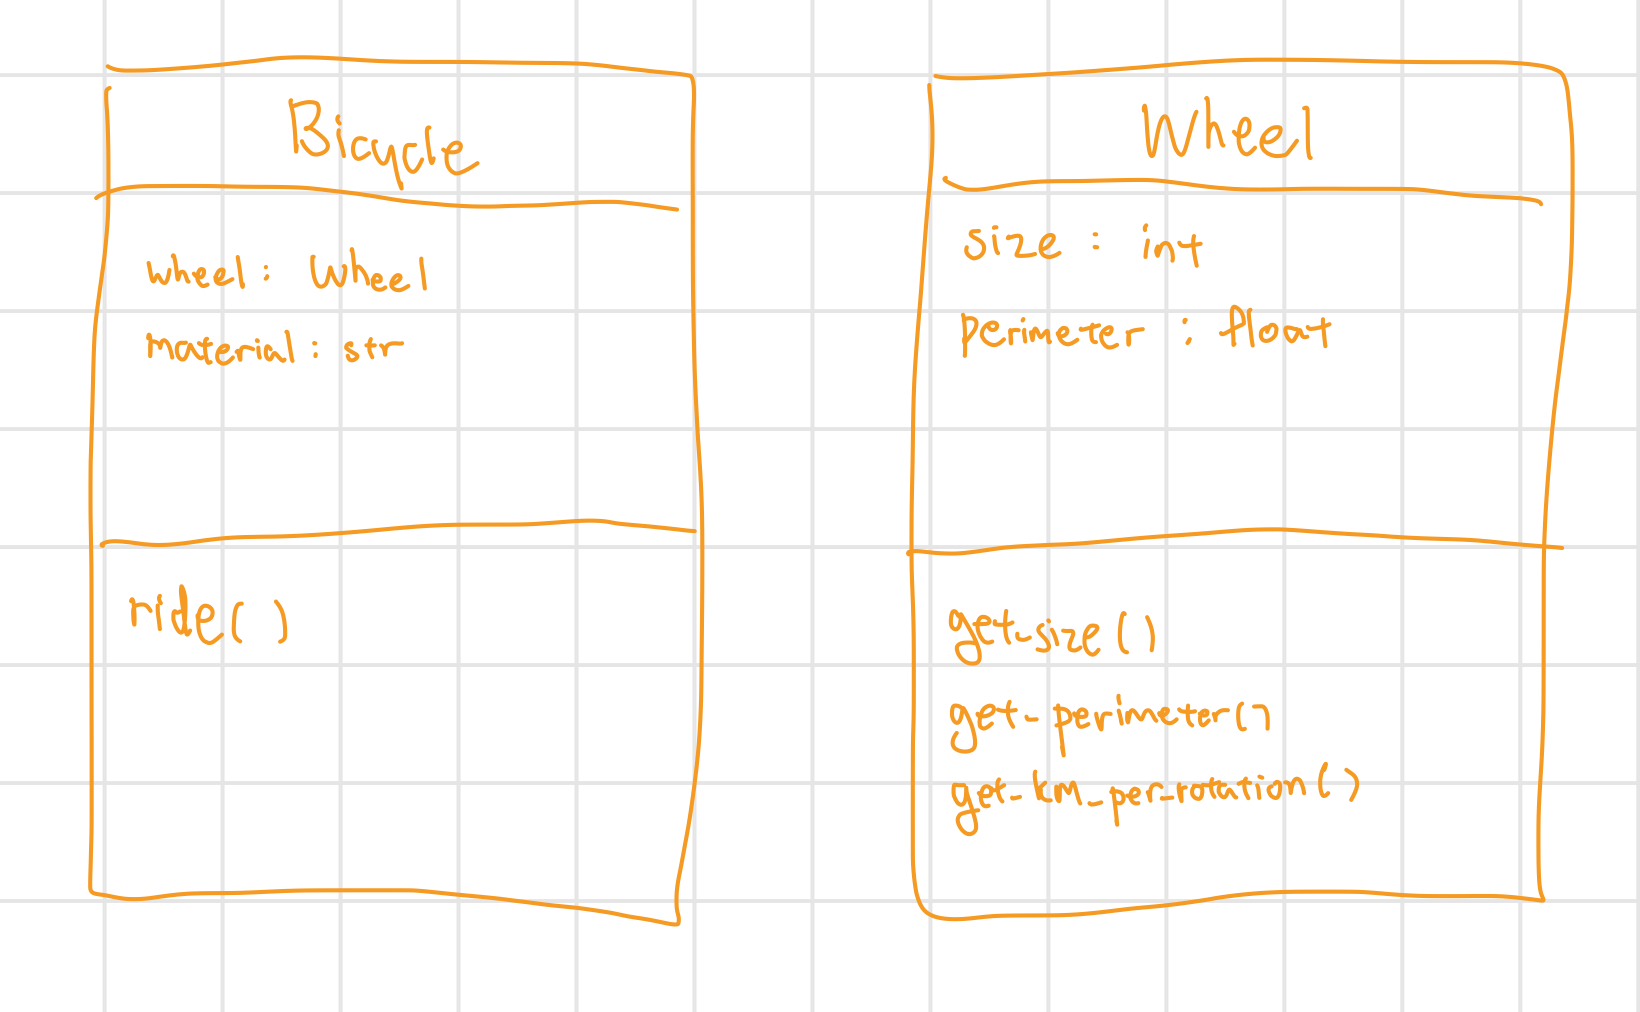 Bicycle
wheel: Wheel
material: str
ride()
Wheel
size : int
perimeter : float
get_size()
get_perimeter()
get_km_per_rotation()